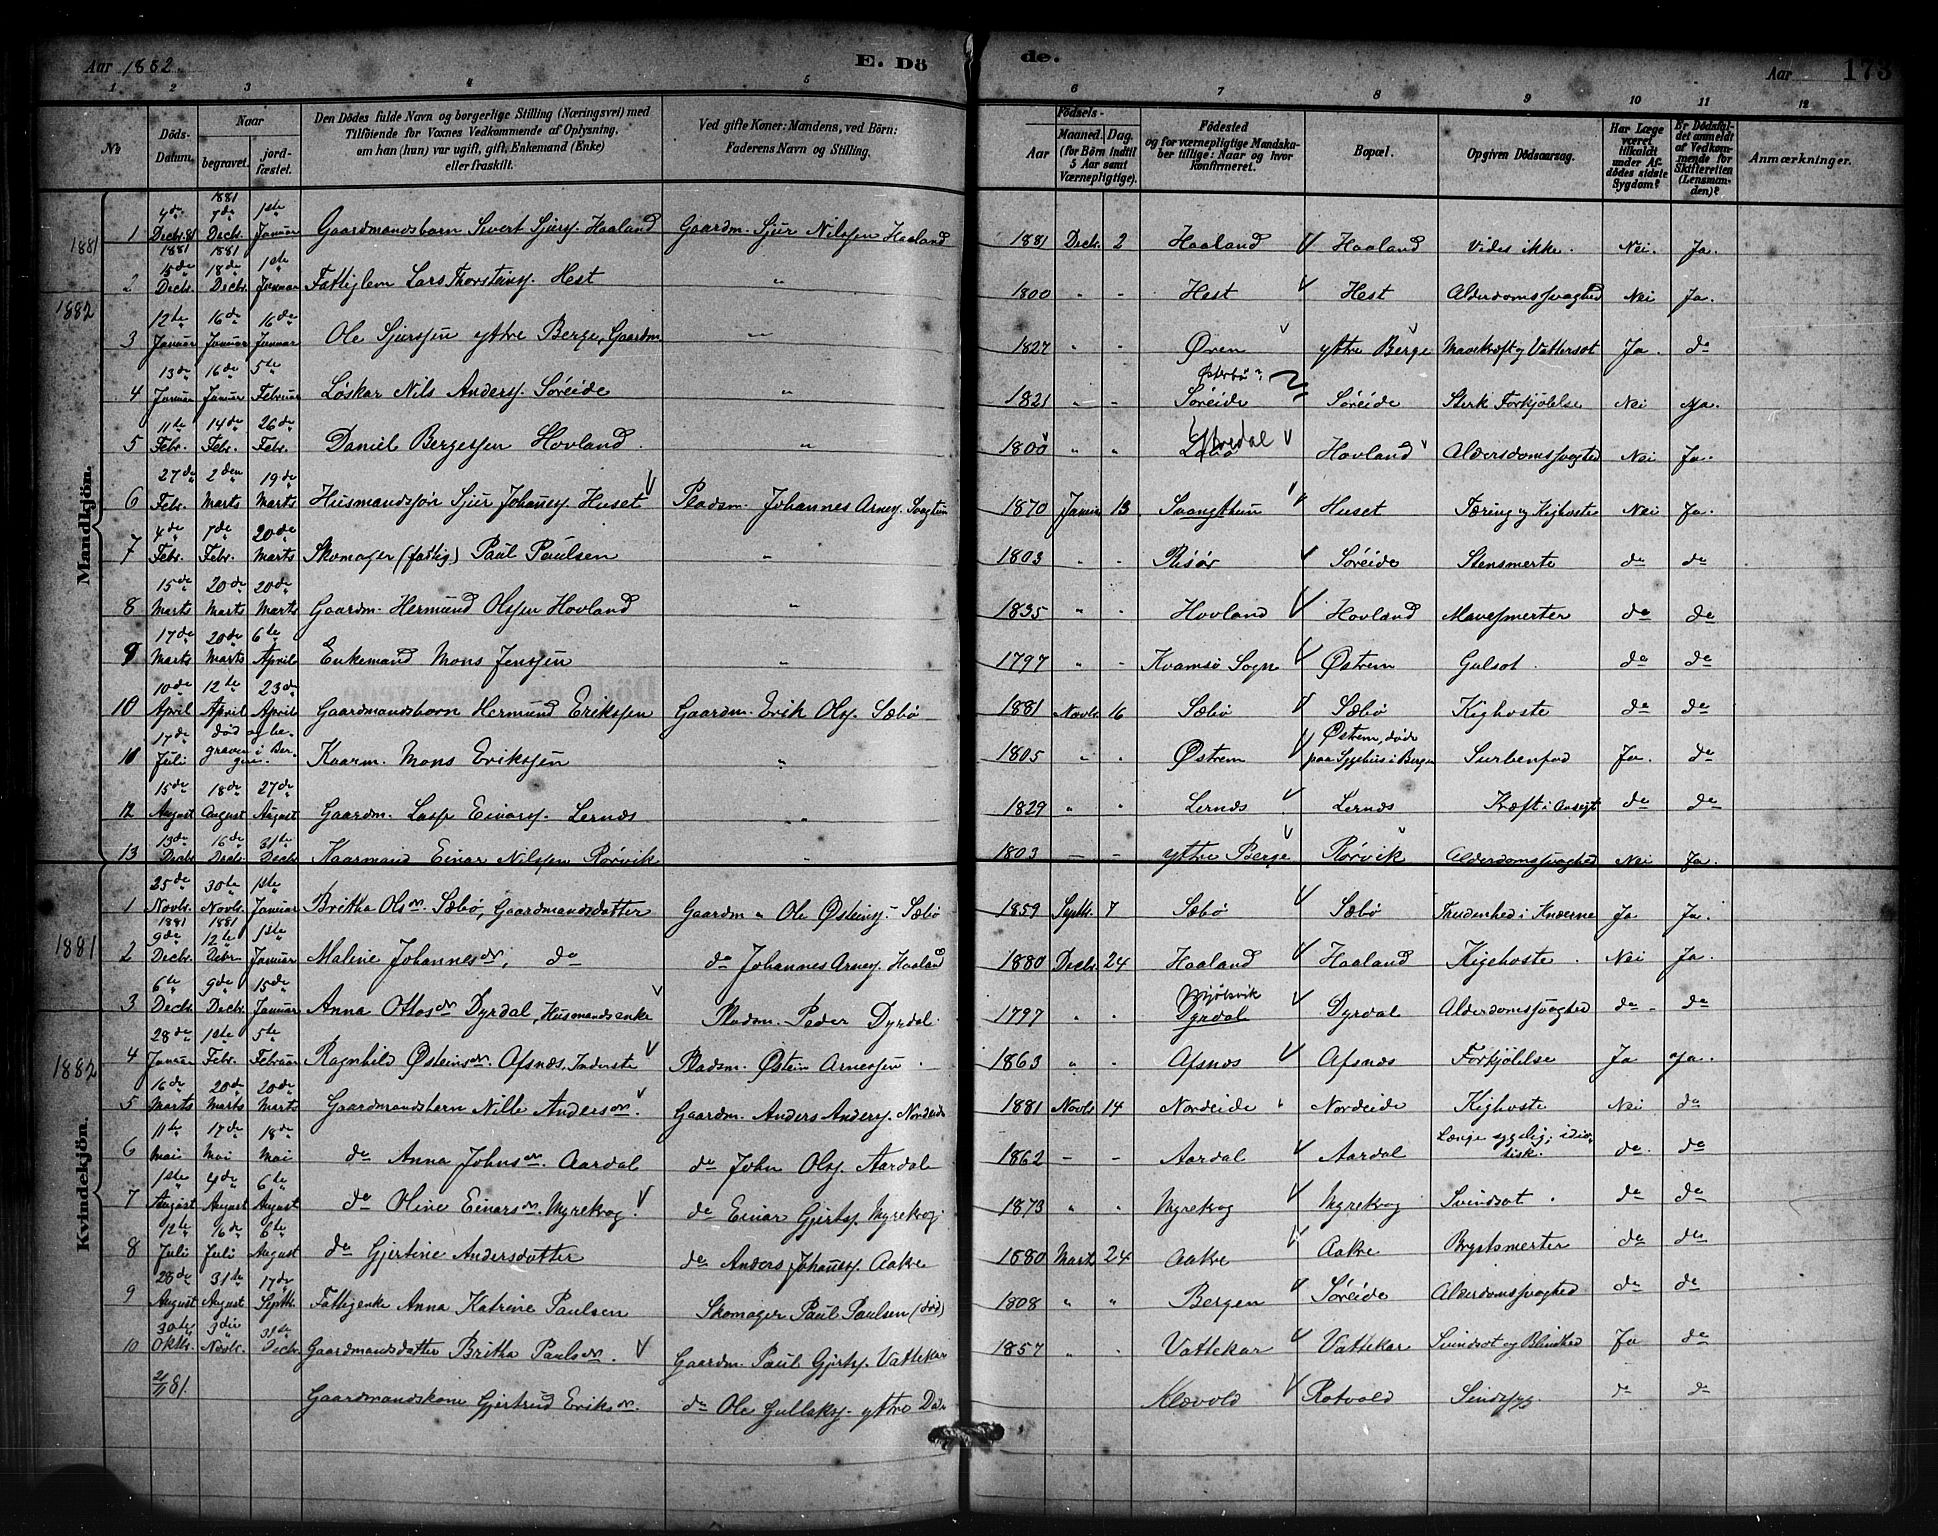 Aar 1882. E. Dö de. Aar 173
1 2 3 4 5 6 7 8 9 10 11 12
No Döds-Datum. Naar begravet. jordfæstet. Den Dödes fulde Navn og borgerlige Stilling (Næringsvei) med Tilföiende for Voxnes Vedkommende af Oplysning, om han (hun) var ugift, gift, Enkemand (Enke) eller fraskilt. Ved gifte Koner: Mandens, ved Börn: Faderens Navn og Stilling. Födsels- Aar Maaned. Dag. (for Börn indtil 5 Aar samt Værnepligtige). Födested og for værnepligtige Mandskaber tillige: Naar og hvor Konfirmeret. Bopæl. Opgiven Dödsaarsag. Har Læge været tilkaldt under Afdödes sidste Sygdom? Er Dödsfaldet anmeldt af Vedkommende for Skifteretten (Lensmanden)? Anmærkninger.
Mandkjön.
1881
1 4de Decbr. 81 1881 7de Decbr. 1ste Januar Gaardmandsbarn Sivert Sjurs. Haaland Gaardm. Sjur Nilssen Haaland 1881 Decb. 2 Haaland Haaland Vides ikke. Nei. Ja.
2 1881 15de Decbr. 1881 18de Decbr. 1ste Januar Fattiglem Lars Thorsteins. Hest " 1800 " " Hest Hest Alderdomssvaghed Nei Ja.
1882
3 12te Januar 16de Januar 16de Januar Ole Sjurssen yttre Berge, Gaardm " 1827 " " Øren yttre Berge Mavekræft og Vattersot Ja. do
4 13de Januar 16de Januar 5te Februar Løskar Nils Anders. Søreide " 1821 " " Søreide Søreide Sterk Forkjølelse Nei Ja.
5 11te Febr. 14de Febr. 26de Febr. Daniel Bergessen Hovland. " 1800 " " Hovland Alderdomssvaghed Nei Ja.
6 27de Febr. 2den Marts 19de Marts Husmandssøn Sjur Johannes. Huset Pladsm. Johannes Arnes. 1870 Januar 13 Huset Tæring og Kighoste Nei Ja.
7 4de Febr. 7de Febr. 20de Marts Skomager (fattig) Paul Paulsen " 1803 " " Risør Søreide Stensmerte do do
8 15de Marts 20de Marts 20de Marts Gaardm. Hermund Olssen Hovland " 1835 " " Hovland Hovland Mavesmerter do do
9 17de Marts 20de Marts 6te April Enkemand Mons Jenssen " 1797 " " Kvamsø Sogn Østrem Gulsot. do do
10 10de April 12te April 23de April Gaardmandsbarn Hermund Erikssen Gaardm. Erik Ols. Sæbø 1881 Novbr. 16 Sæbø Sæbø Kighoste do do
10 17de Juli død og begraven i Bergen. Kaarm. Mons Erikssen " 1805 " " Østrem Østrem, døde paa Sygehus i Bergen Ja. do
12 15de August 18de August 27de August Gaardm. Lasse Einars. Lernæs " 1829 " " Lernæs Lernæs Kræft i Ansigt do do
13 13de Decbr. 16de Decbr. 31te Decbr Kaarmand Einar Nilssen Rørvik " 1803 - - yttre Berge Rørvik Alderdomssvaghed Nei Ja.
Kvindekjön.
1 25de Novbr. 1881 30te Novbr. 1881 1ste Januar Britha Olsdr. Sæbø, Gaardmandsdatter Gaardm. Ole Østeins. Sæbø 1859 Septbr. 7 Sæbø Sæbø Trudenhed i Knæerne Ja Ja.
1881
2 9de Decbr. 12te Debr. 1ste Januar Maline Johannesdr, do do Johannes Arnes. Haaland 1880 Decbr. 24 Haaland Haaland Kighoste. Nei Ja.
3 6te Decbr. 9de Decbr. 15de Januar Anna Ottosdr Dyrdal, Husmandsenke Pladsm. Peder Dyrdal. 1797 " " Mjølsvik Dyrdal Dyrdal Alderdomssvaghed do do
1882
4 28de Januar 1ste Febr. 5te Februar Ragnhild Østeinsdr. Afsnæs, Inderste Pladsm. Østein Arnessen. 1863 " " Afsnæs Afsnæs Forkjølelse Ja Ja.
5 16de Marts 20de Marts 20de Marts Gaardmandsbarn Nille Andersdr. Gaardm. Anders Anders. Nordeide 1881 Novbr. 14 Nordeide Nordeide Kighoste Nei do
6 11te Mai 17de Mai 18de Mai do Anna Johnsdr. Aardal do John Ols. Aardal 1862 - - Aardal Aardal Længe sygelig; idiotisk. do do
7 1ste August 4de August 6te August do Oline Einarsdr. Myrekrog. do Einar Gjerts. Myrekrog. 1873 " " Myrekrog Myrekrog Svindsot. do do
8 12te Juli 16de Juli 6te August do Gjertine Andersdatter do Anders Johannes. Aakre 1880 Marts 24 Aakre Aakre Brystsmerter do do
9 28de August 31te August 17de Septbr. Fattigenke Anna Katrine Paulsen Skomager Paul Paulsen (død) 1808 " " Bergen Søreide Alderdomssvaghed do do
10 30te Oktbr. 3die Novbr. 31te Decbr. Gaardmandsdatter Britha Paulsdr. Gaardm. Paul Gjerts. Vattekar 1857 " " Vattekar Vattekar Svindsot og Blindhed Ja do
21/11 81. Gaardmandskone Gjertrud Eriksdr. do Ole Gullaks. yttre Klævold Rotvold Sindssyg. do do